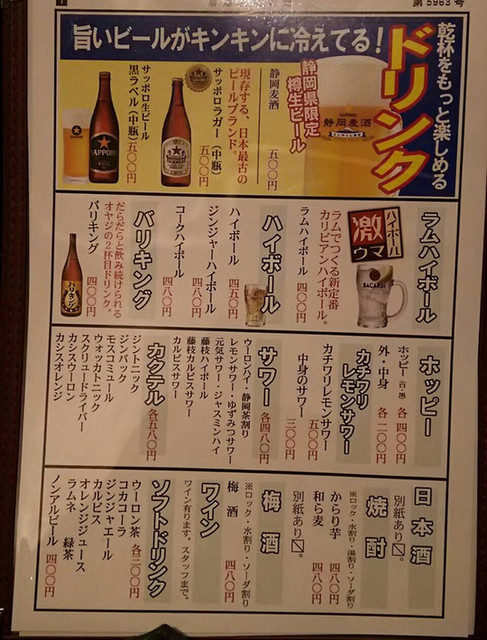 第5963号
乾杯をもっと楽しめる
ドリンク
旨いビールがキンキンに冷えてる!
静岡県限定
樽生ビール
静岡麦酒
静岡麦酒 五〇〇円
現存する、日本最古の
ビールブランド。
サッポロラガー(中瓶)
五〇〇円
サッポロ生ビール
黒ラベル(中瓶) 五〇〇円
SAPPORO
ラムハイボール
ハイボール
激
ウマ
BACARDI
ラムでつくる新定番
カリビアンハイボール。
ラムハイボール 四〇〇円
ハイボール
ハイボール 四五〇円
ジンジャーハイボール 四八〇円
コークハイボール 四八〇円
バリキング
だらだらと飲み続けられる
オヤジの2杯目ドリンク。
バリキング 四〇〇円
ホッピー
ホッピー(白・黒) 各四〇〇円
外・中身 各二〇〇円
カチワリ
レモンサワー
カチワリレモンサワー 五〇〇円
中身のサワー 三〇〇円
サワー 各四八〇円
ウーロンハイ・静岡茶割り
レモンサワー・ゆずみつサワー
元気サワー・ジャスミンハイ
藤枝ハイボール
藤枝カルピスサワー
カルピスサワー
カクテル 各五八〇円
ジントニック
ジンバック
モスコミュール
ウォッカトニック
スクリュードライバー
カシスウーロン
カシスオレンジ
日本酒
別紙あり
焼酎
※ロック・水割り・湯割り・ソーダ割り
からり芋 四八〇円
和ら麦 四八〇円
別紙あり
梅酒
※ロック・水割り・ソーダ割り
梅酒 四八〇円
ワイン
ワイン有ります。スタッフまで。
ソフトドリンク
ウーロン茶 各三〇〇円
コカコーラ
ジンジャエール
カルピス
オレンジジュース
ラムネ 緑茶
ノンアルビール 四〇〇円